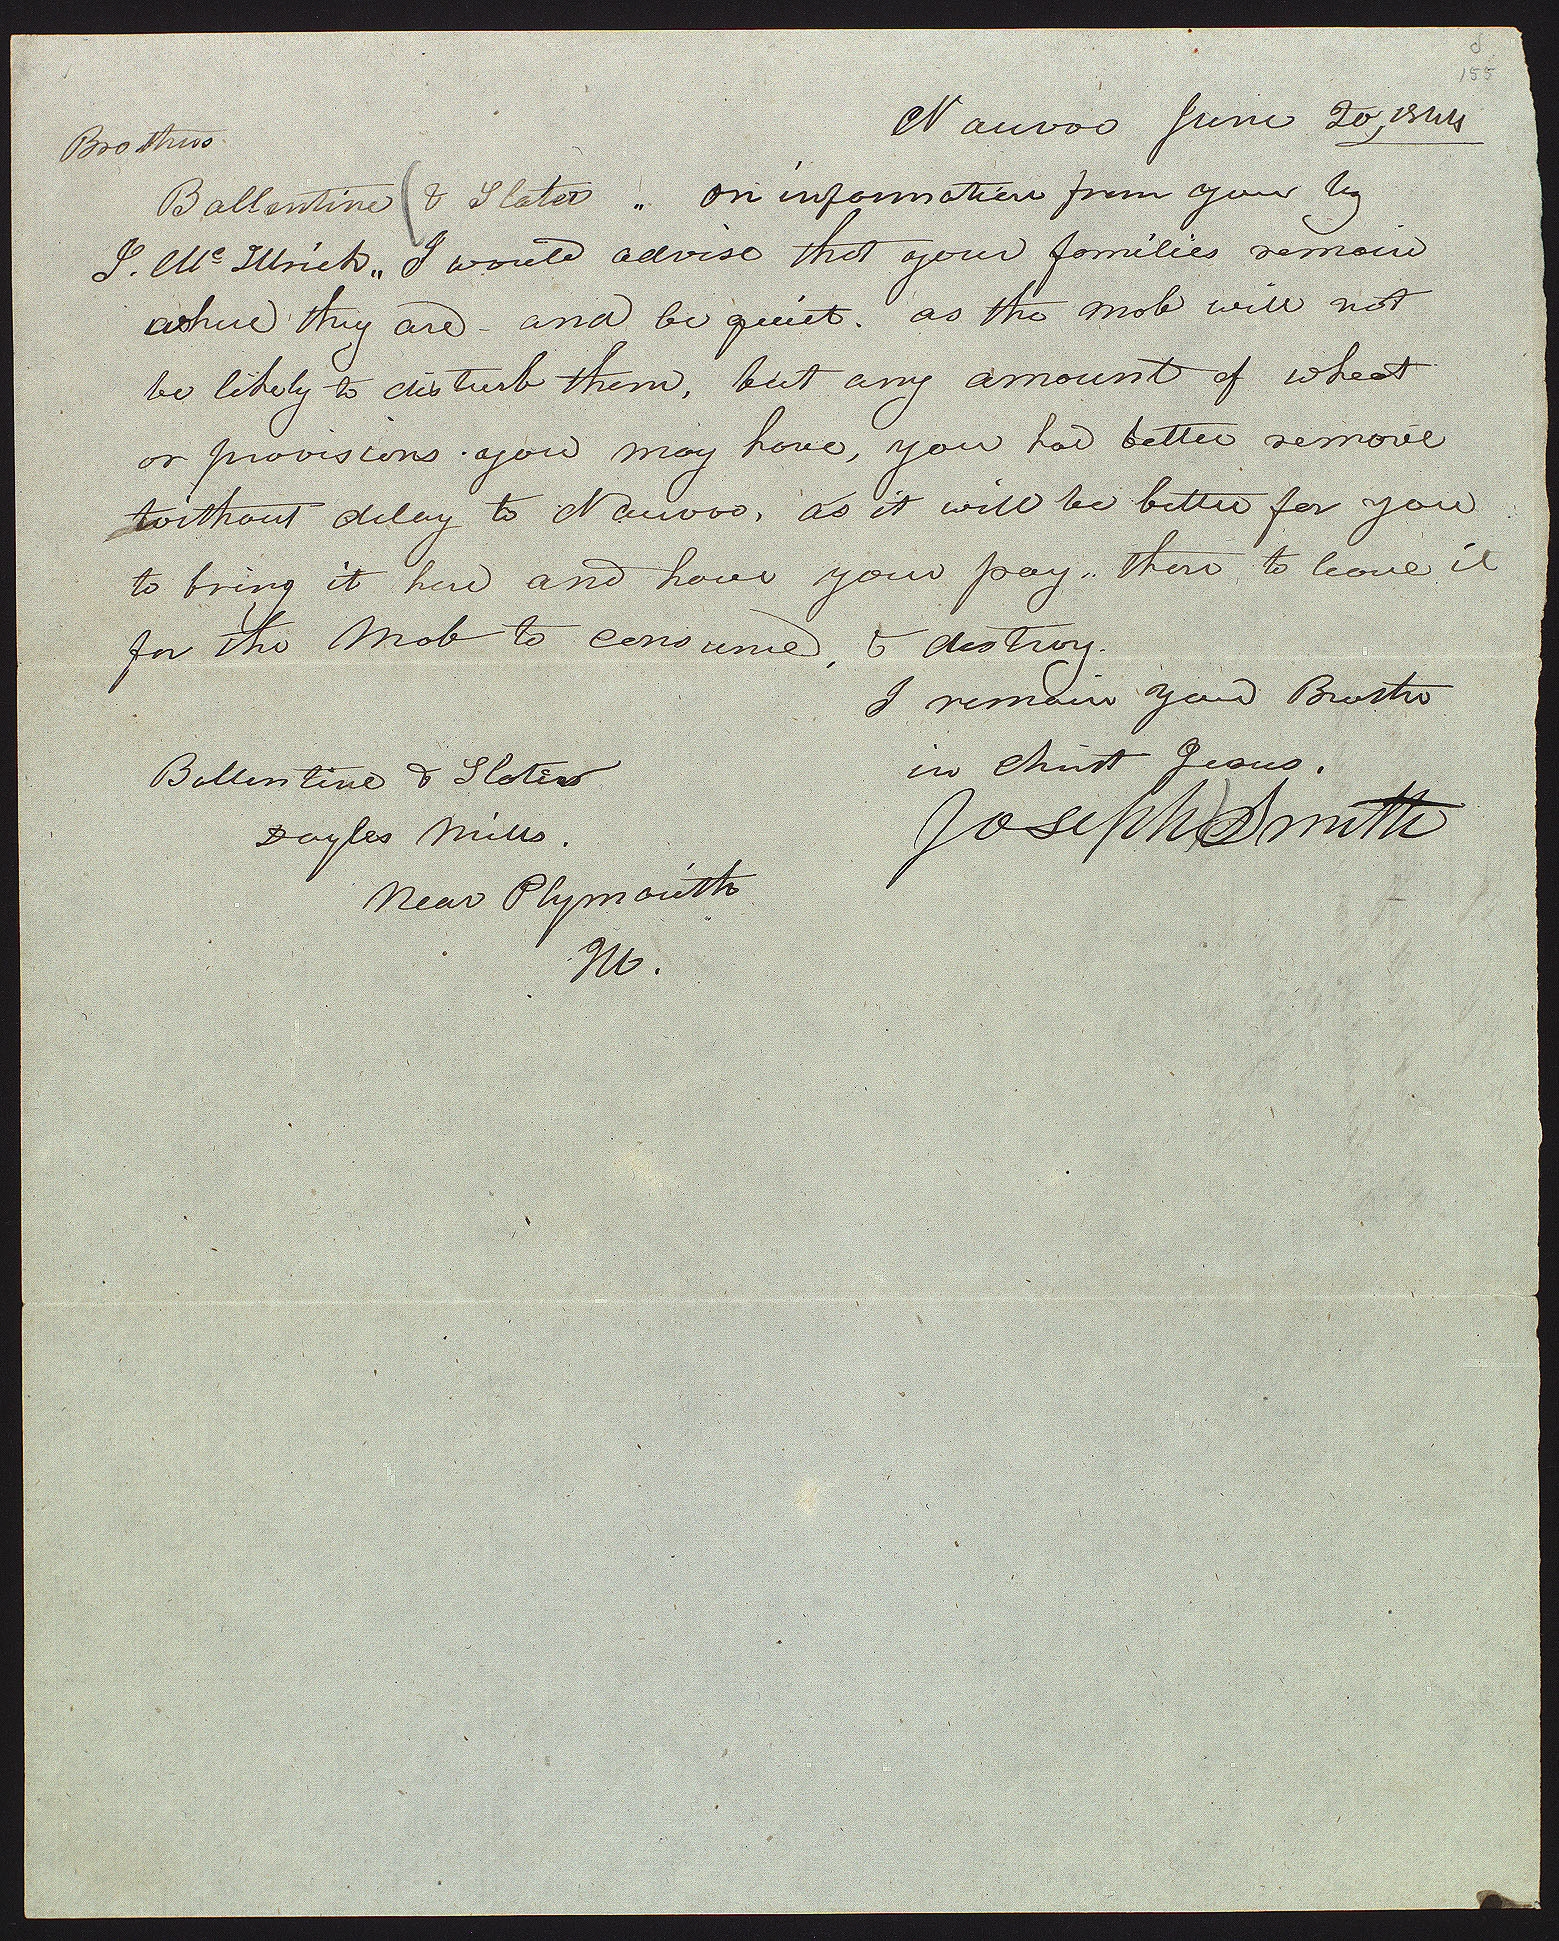 155
Nauvoo June 20, 1844
Brothers
Ballentine & Slater „ on information from your by
J. Mc Illrick„ I would advise that your families remain
where they are - and be quiet. as the mob will not
be likely to disturb them, but any amount of wheat
or provisions you may have, you had better remove
without delay to Nauvoo, as it will be better for you
to bring it here and have your pay„ then to leave it
for the Mob to consume, & destroy.
I remain your Brother
in Christ Jesus.
Joseph Smith
Ballentine & Slater
Doyles Mills.
Near Plymouth
Ill.